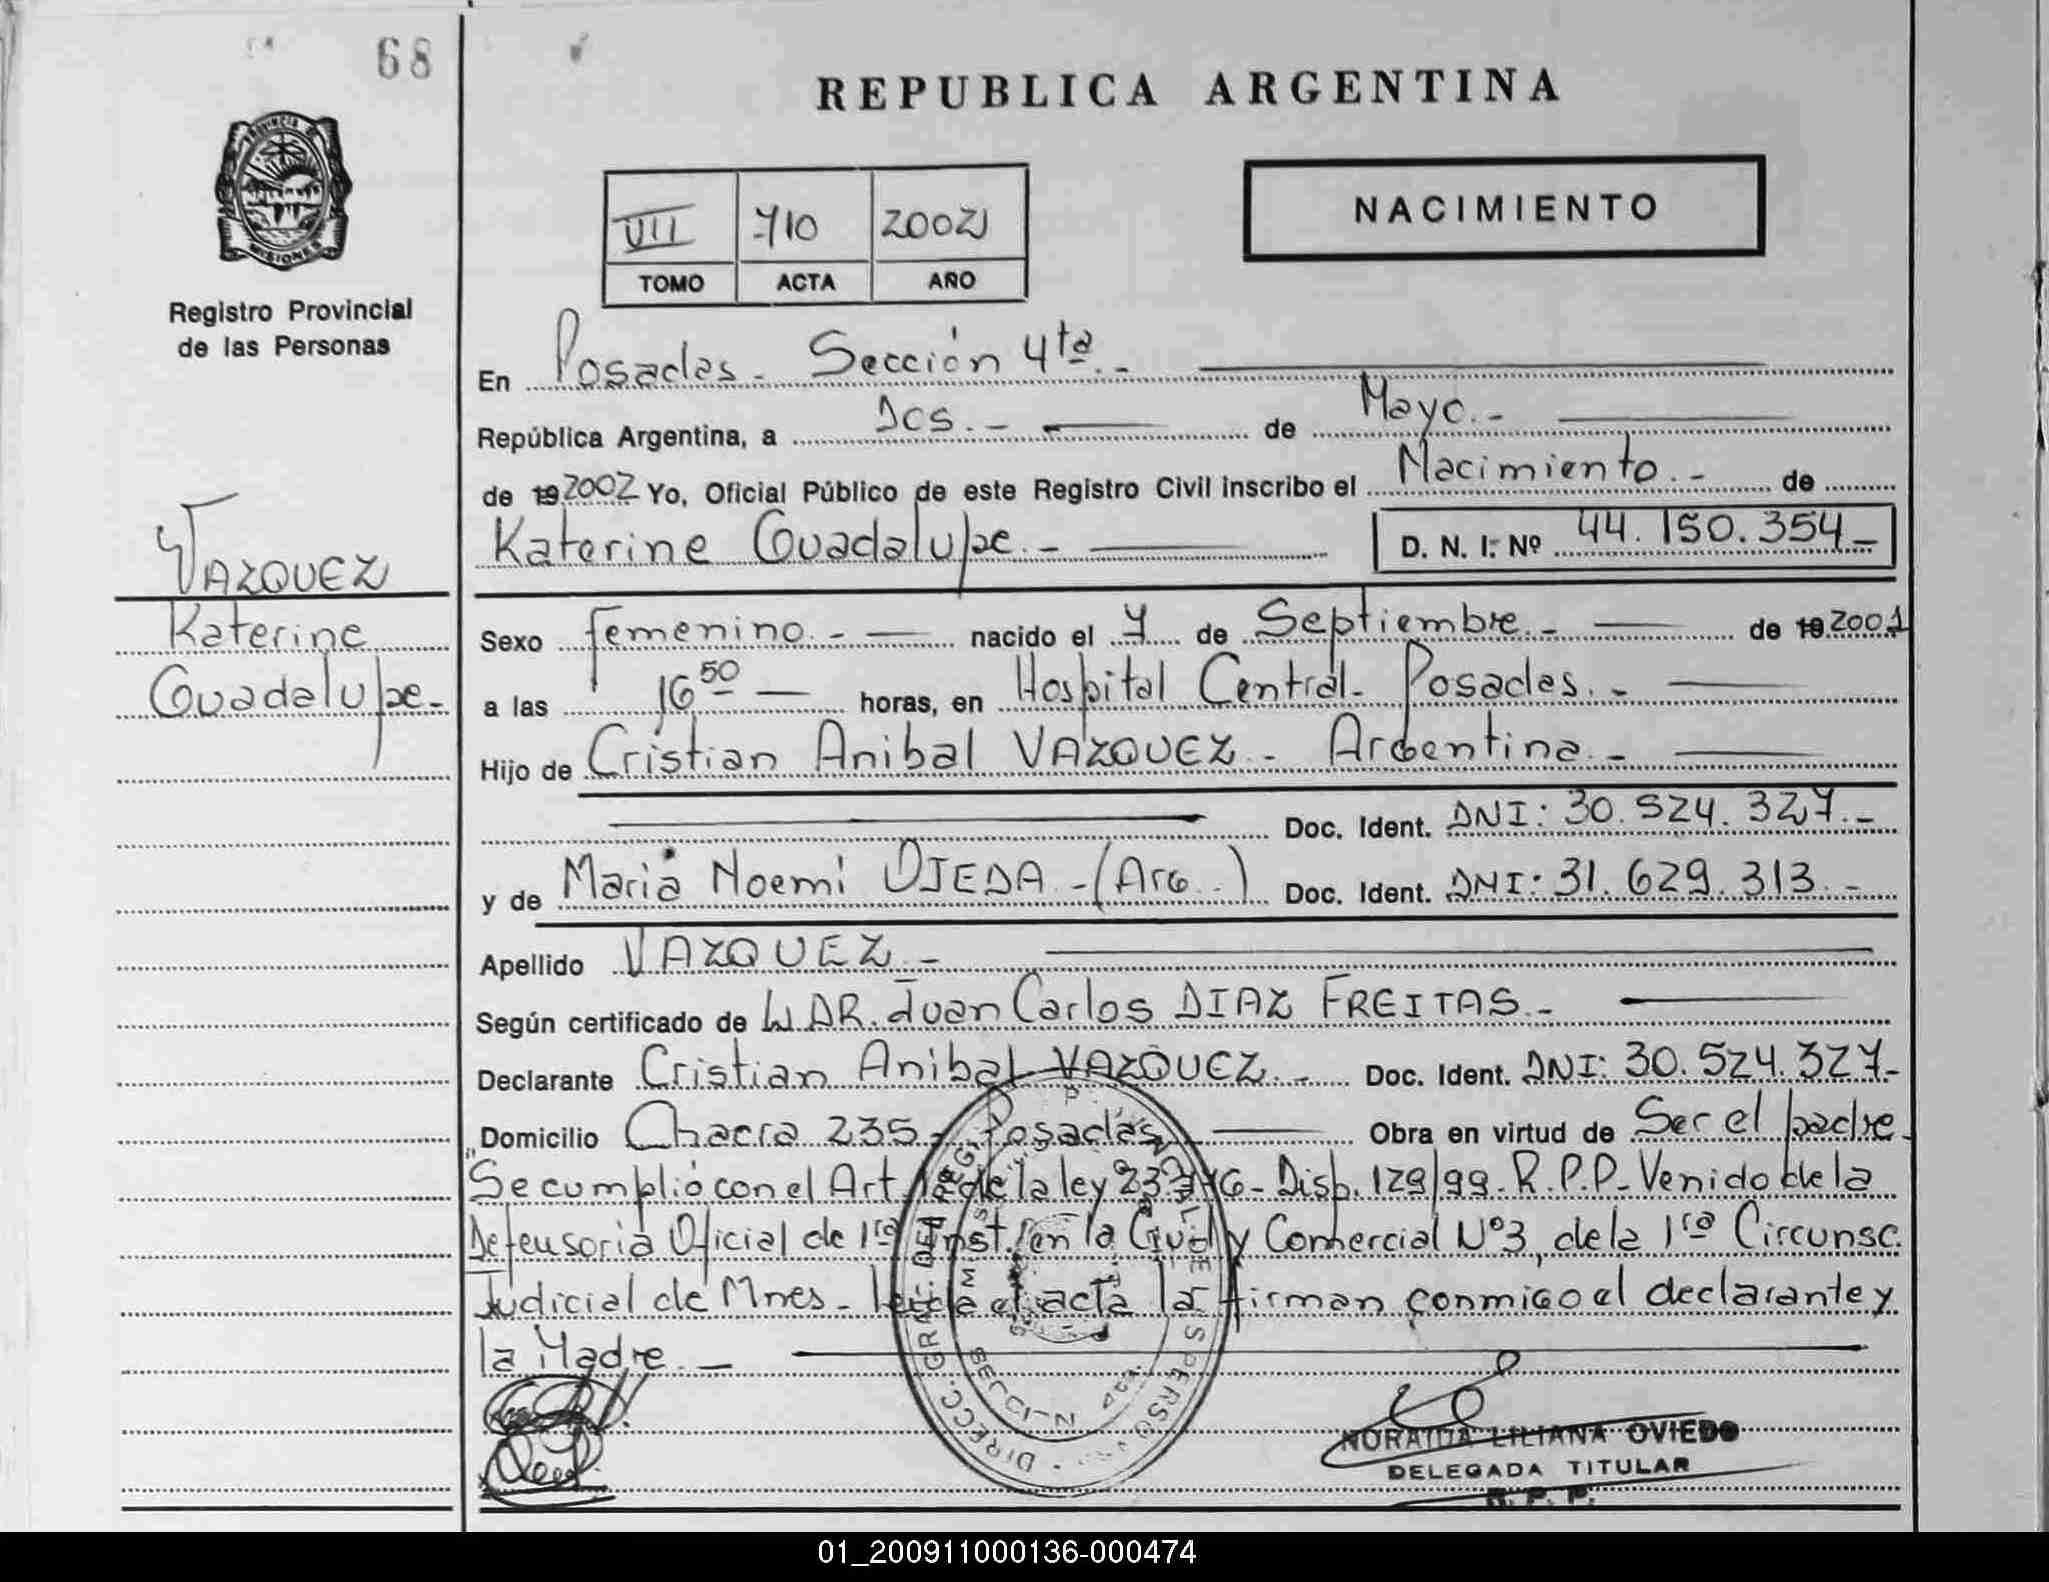 68
REPUBLICA ARGENTINA
PROVINCIA DE MISIONES
Registro Provincial
de las Personas
VII 710 2002
TOMO ACTA AÑO
NACIMIENTO
En Posadas - Sección 4ta.-
República Argentina, a Dos.- de Mayo.-
de 19 2002 Yo, Oficial Público de este Registro Civil inscribo el Nacimiento.- de
Katerine Guadalupe.- D. N. I. Nº 44.150.354_
VAZQUEZ
Katerine
Guadalupe-
Sexo femenino.- nacido el 7 de Septiembre.- de 19 2001
a las 16 50 horas, en Hospital Central- Posadas.-
Hijo de Cristian Anibal VAZQUEZ - Argentina.-
Doc. Ident. DNI: 30.524.327.-
y de Maria Noemi OJEDA -(Arg.) Doc. Ident. DNI: 31.629.313.-
Apellido VAZQUEZ.-
Según certificado de DR. Juan Carlos DIAZ FREITAS.-
Declarante Cristian Anibal VAZQUEZ.- Doc. Ident. DNI: 30.524.327-
Domicilio Chacra 235- Posadas Obra en virtud de Ser el padre.
Se cumplió con el Art de la ley - Disp. 129/99. R.P.P- Venido de la
Defensoria Oficial de 1ra Inst. en lo Civil y Comercial Nº3, de la 1ra Circunsc.
Judicial de Mnes- leida el acta la firman conmigo el declarante y
la Madre.-
NORAIDA LILIANA OVIEDO
DELEGADA TITULAR
R. P. P.
01_200911000136-000474